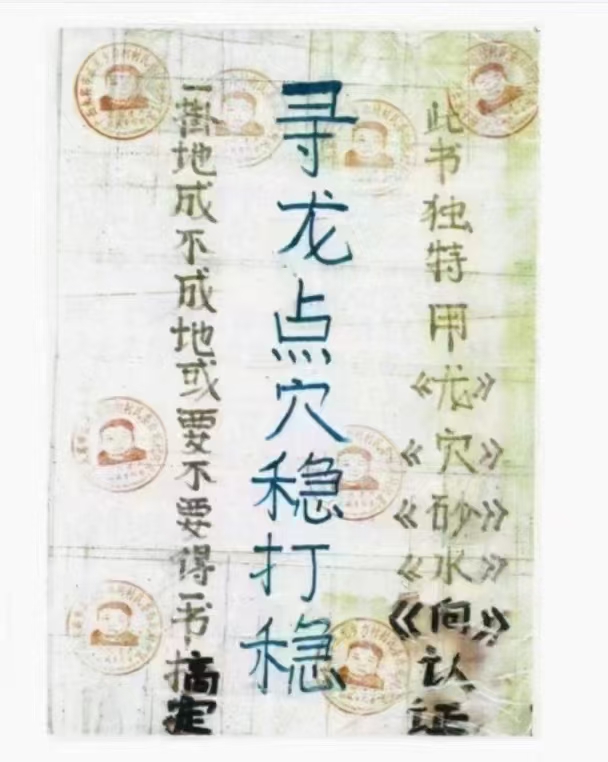 此书独特用《龙》《穴》《砂》《水》《向》认证
寻龙点穴稳打稳
一地成不成地或要不要得一书搞定